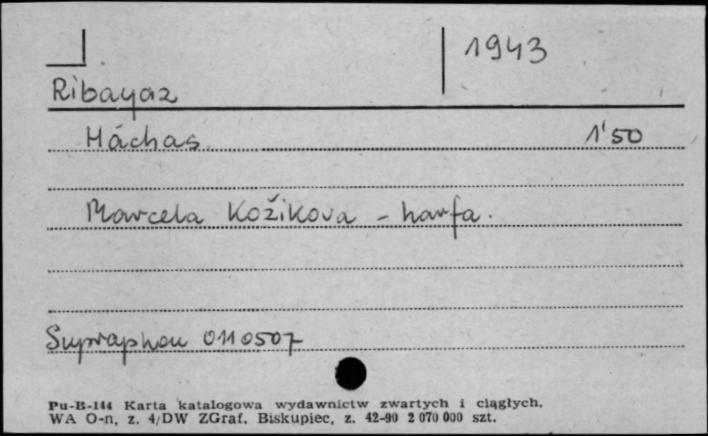 1943
Ribayaz
Háchas 1'50
Marcela Kožikova - harfa.
Supraphon 0110507
Pu-B-144 Karta katalogowa wydawnictw zwartych i ciągłych.
WA O-n, z. 4/DW ZGraf. Biskupiec, z. 42-90 2 070 000 szt.